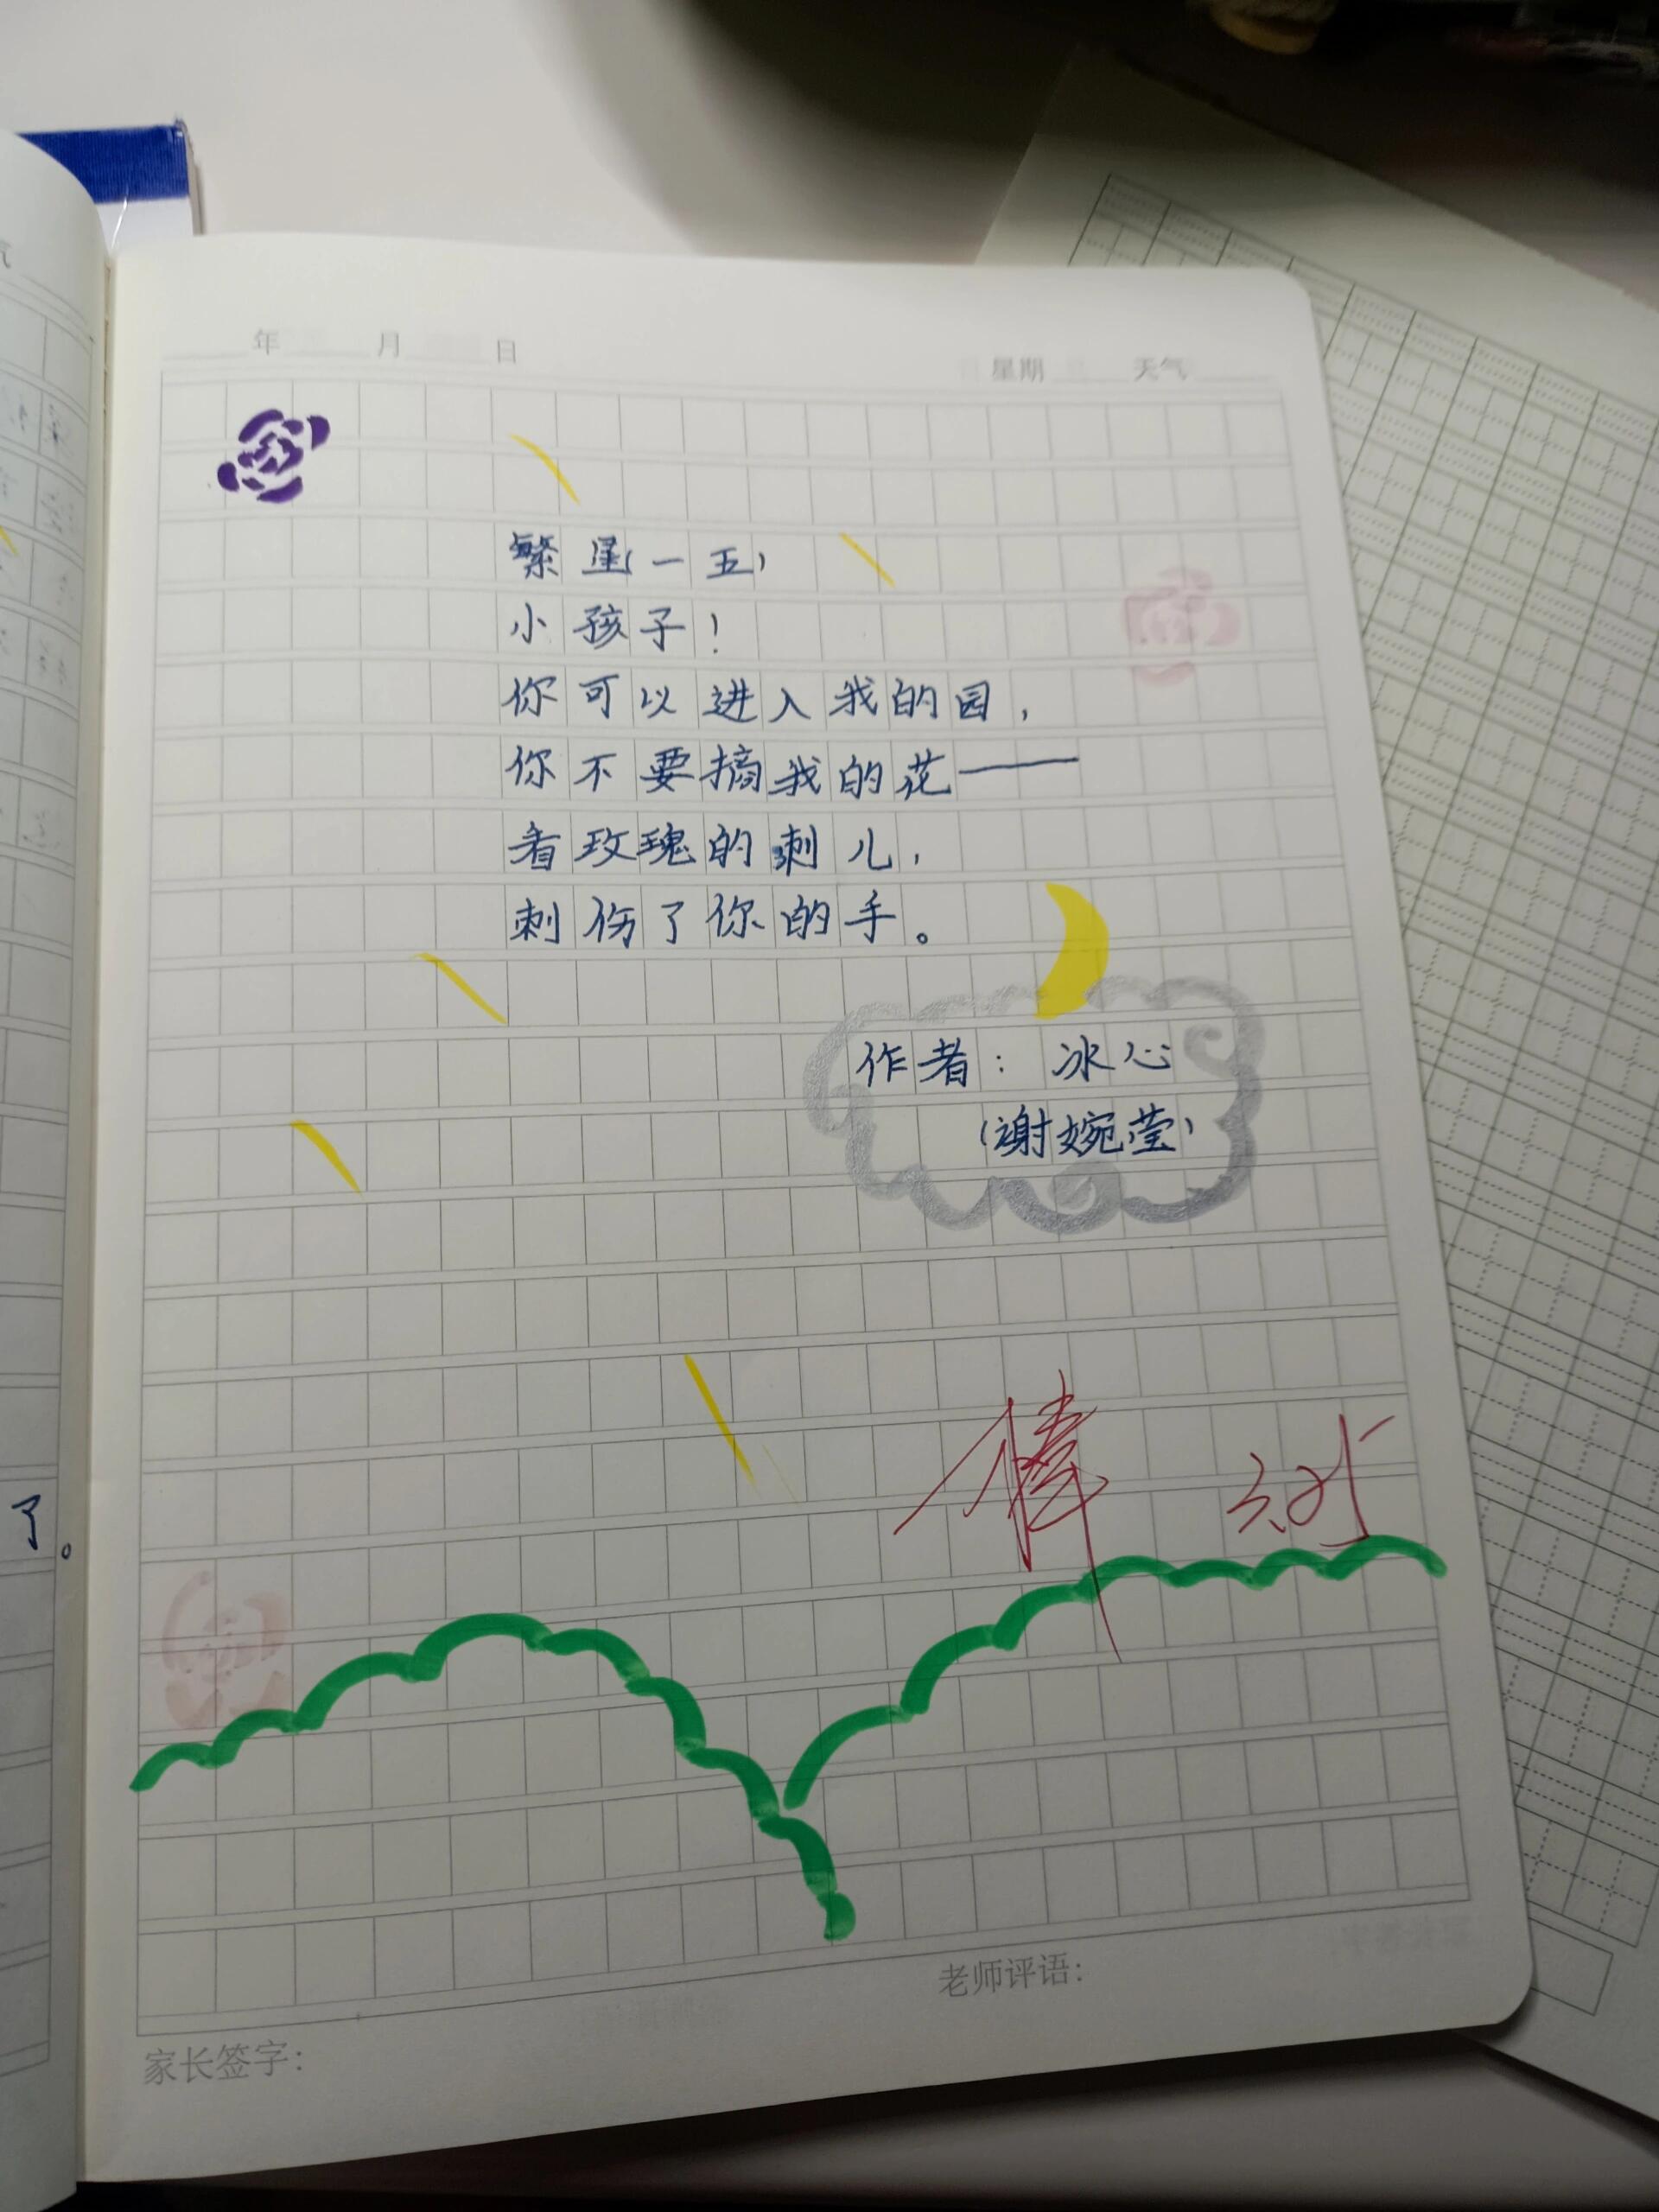 年 月 日 星期 天气
繁星(一五)
小孩子!
你可以进入我的园,
你不要摘我的花——
看玫瑰的刺儿,
刺伤了你的手。
作者: 冰心
(谢婉莹)
了。
老师评语:
家长签字: